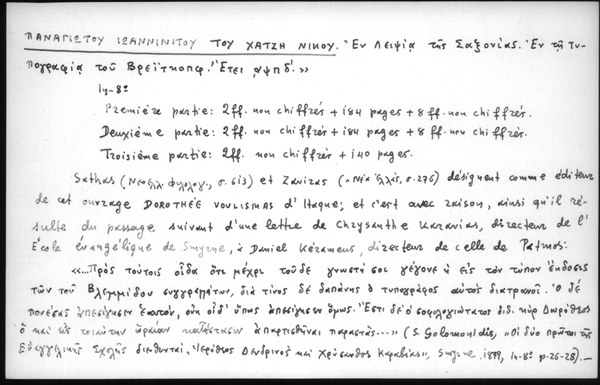 ΠΑΝΑΓΙΩΤΟΥ ΙΩΑΝΝΙΝΙΤΟΥ ΤΟΥ ΧΑΤΖΗ ΝΙΚΟΥ. Ἐν Λειψίᾳ τῆς Σαξονίας. Ἐν τῇ Τυ-
πογραφίᾳ τοῦ Βρεϊτκοπφ. Ἔτει ͵αψπδ΄.»
In-8º
Première partie: 2ff. non chiffrés + 184 pages + 8 ff. non chiffrés.
Deuxième partie: 2ff. non chiffrés + 184 pages + 8 ff. non chiffrés.
Troisième partie: 2ff. non chiffrés + 140 pages.
Sathas (Νεοελλ. Φιλολογ., σ. 613) et Zaviras («Νέα Ἑλλάς, σ. 276) désignent comme éditeur
de cet ouvrage DOROTHÉE VOULISMAS d'Itaque; et c'est avec raison, ainsi qu'il ré-
sulte du passage suivant d'une lettre de Chrysanthe Karavias, directeur de l'
École évangélique de Smyrne, à Daniel Kérameus, directeur de celle de Patmos:
«...Πρὸς τούτοις οἶδα ὅτι μέχρι τοῦδε γνωστή σοι γέγονε ἡ εἰς τὸν τύπον ἔκδοσις
τῶν τοῦ Βλεμμίδου συγγραμμάτων, διὰ τίνος δὲ δαπάνης ὁ τυπογράφος αὐτὸς διατρανοῖ. Ὁ δὲ
πονέσας ἀπεσίγησεν ἑαυτόν, οὐκ οἶδ' ὅπως ἀπεσίγησεν ὅμως. Ἔστι δὲ ὁ σοφολογιώτατος διδ. κὺρ Δωρόθεος
ὁ καὶ εἰς τοιαύτην ὡραίαν κατάστασιν ἀπαρτισθῆναι παραστὰς...» (S. Golomonidis, «Οἱ δύο πρῶτοι τῆς
Εὐαγγελικῆς Σχολῆς διευθυνταί, Ἱερόθεος Δενδρινὸς καὶ Χρύσανθος Καραβίας», Smyrne, 1899, in-8º p. 26-28).—